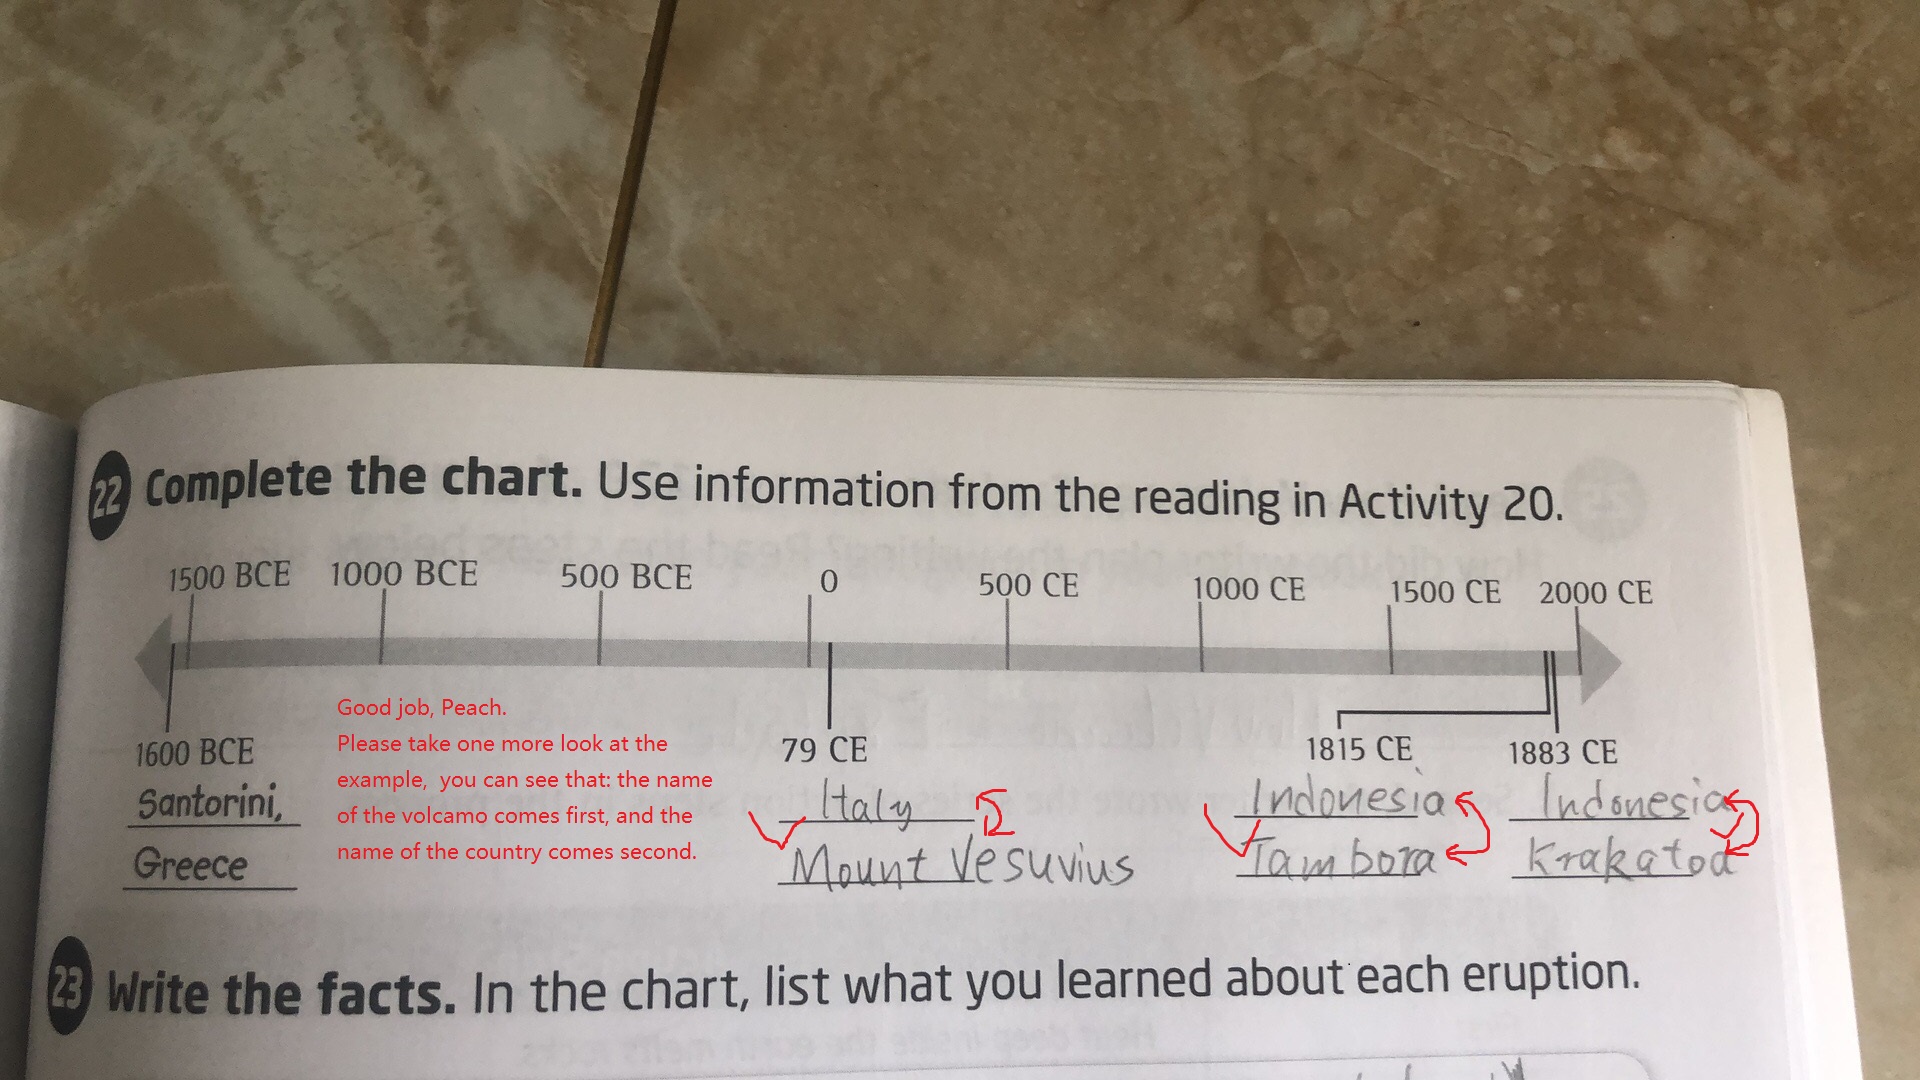 22 Complete the chart. Use information from the reading in Activity 20.
1500 BCE 1000 BCE 500 BCE 0 500 CE 1000 CE 1500 CE 2000 CE
1600 BCE
Santorini,
Greece
Good job, Peach.
Please take one more look at the
example, you can see that: the name
of the volcamo comes first, and the
name of the country comes second.
79 CE
Italy
Mount Vesuvius
1815 CE
Indonesia
Tambora
1883 CE
Indonesia
Krakatoa
23 Write the facts. In the chart, list what you learned about each eruption.